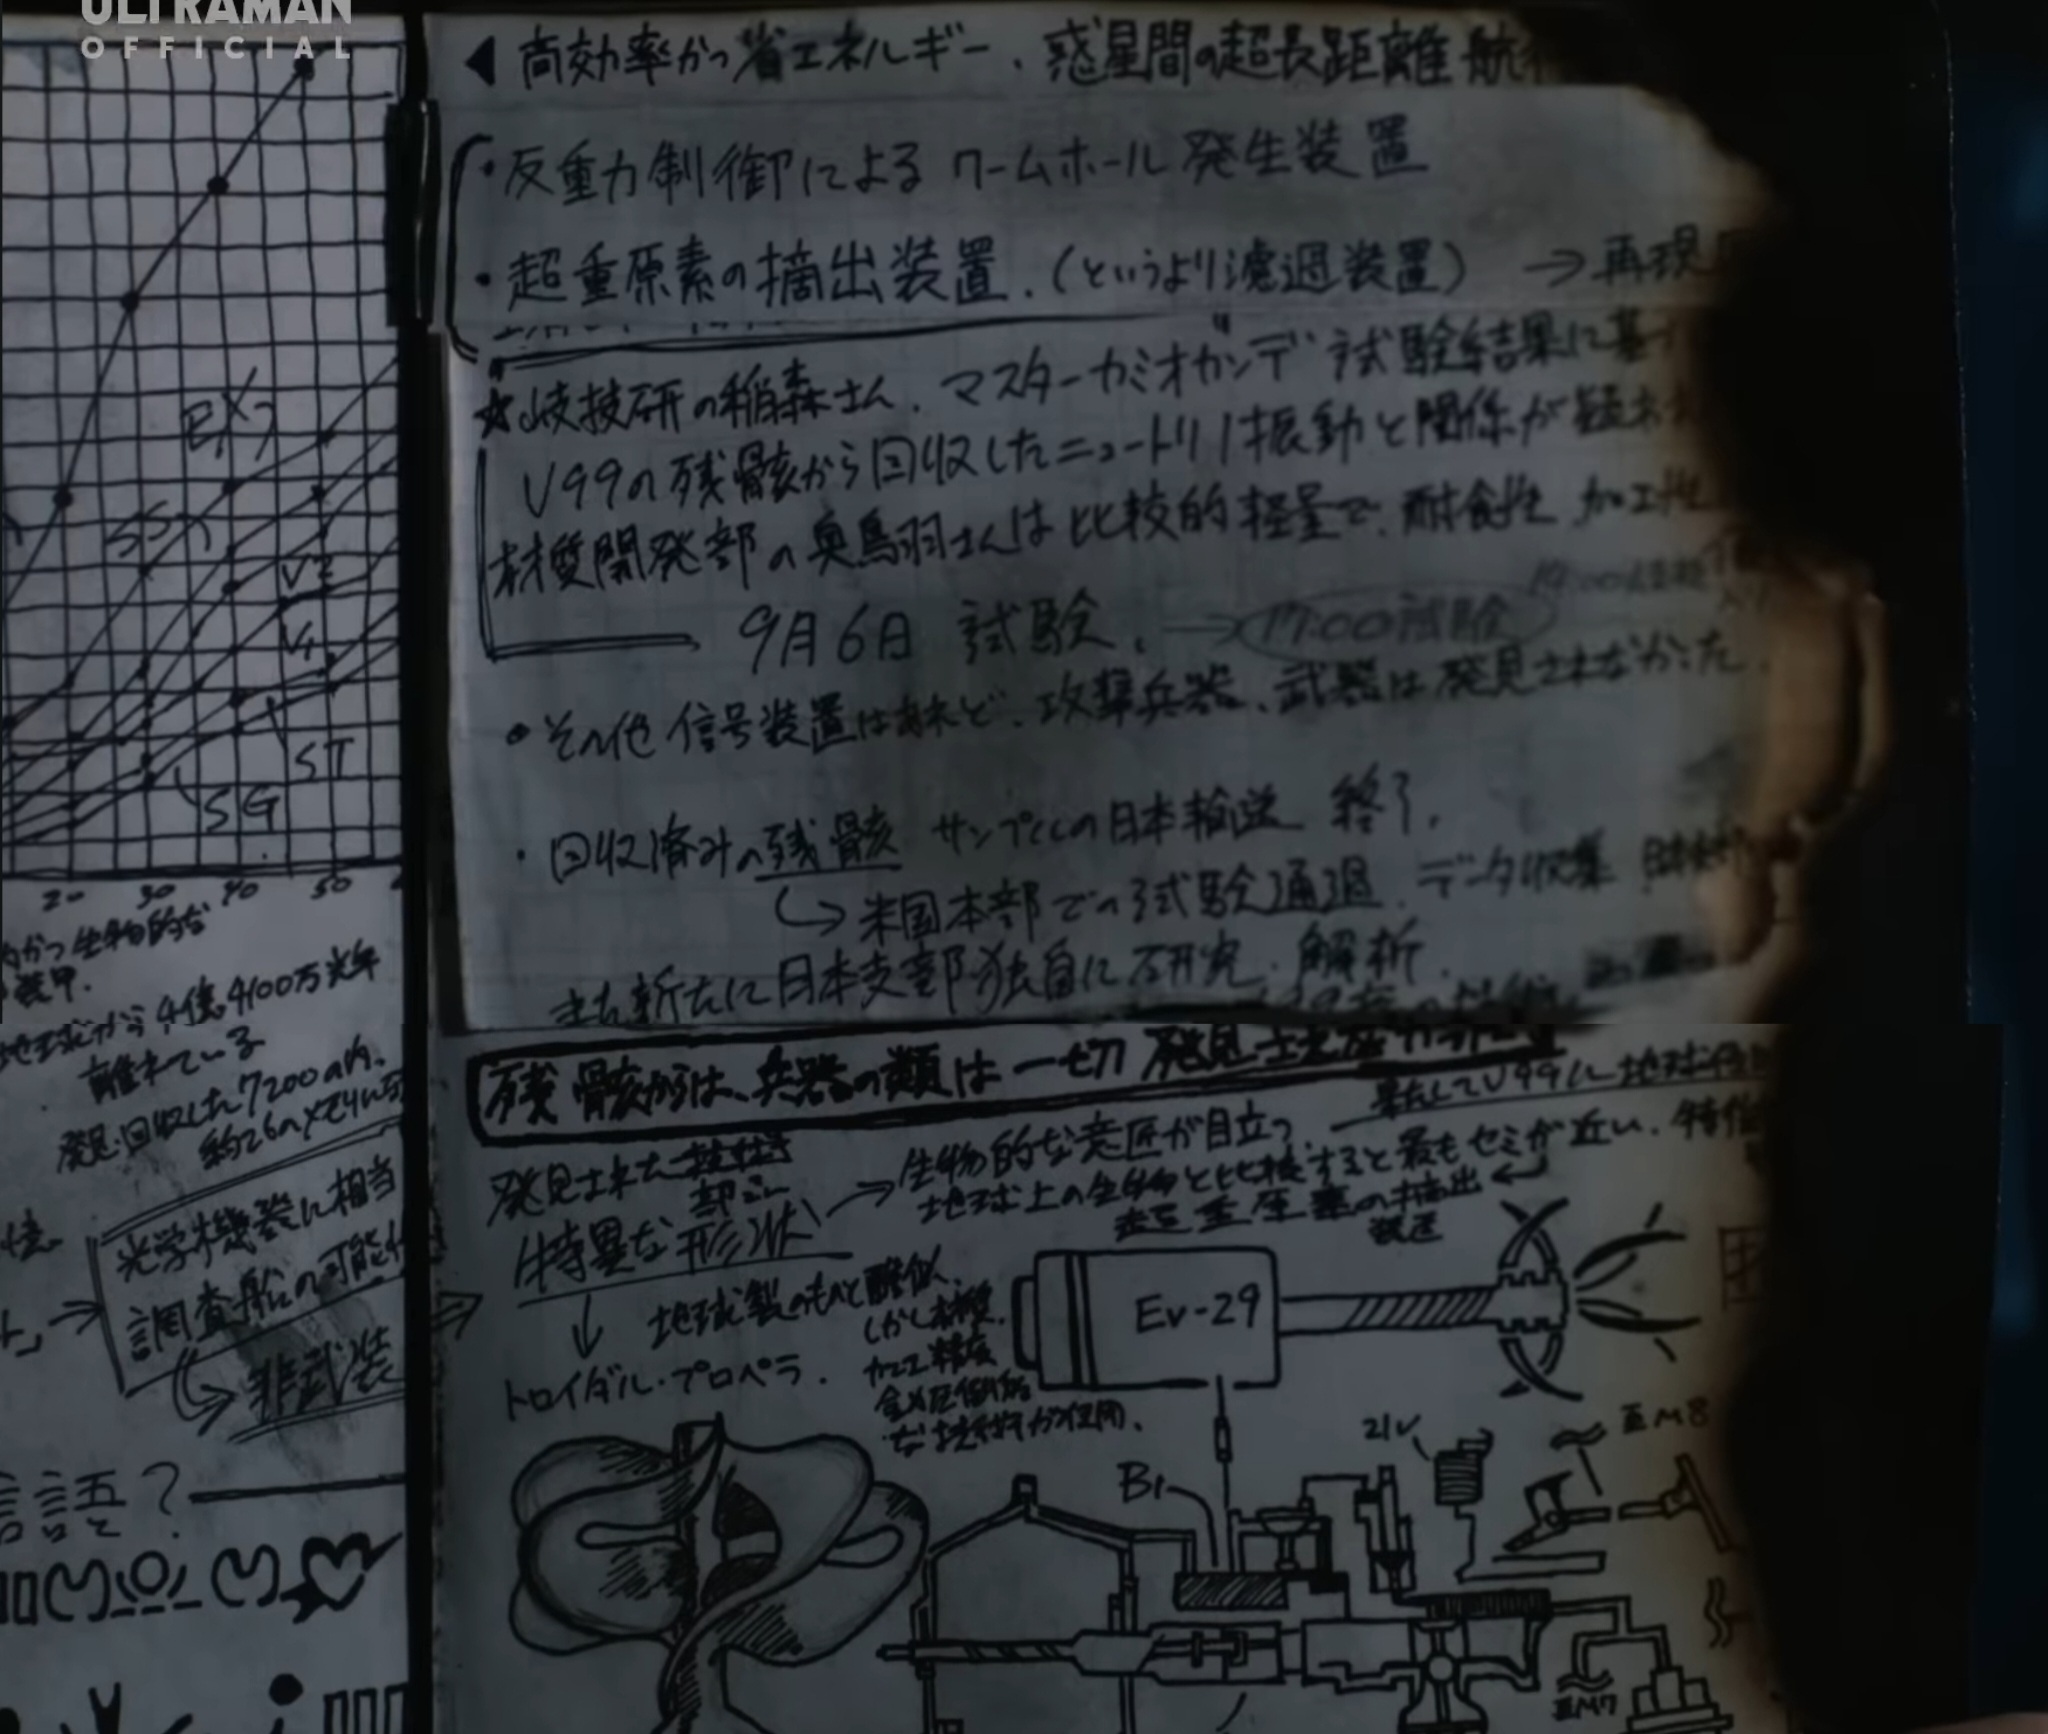 ULTRAMAN
OFFICIAL
EX
SS
V2
V1
ST
SG
20 30 40 50
かつ生物的な
装甲.
地球から4億4100万光年
離れている
発見・回収した7200の内、
約26
光学機器に相当
調査船の可能
非武装
言語?
◀ 高効率かつ省エネルギー、惑星間の超長距離航行
・反重力制御によるワームホール発生装置
・超重原素の摘出装置.(というより濾過装置) → 再現
技研の稲森さん、マスターカミオカンデ試験結果に基
V99の残骸から回収したニュートリノ振動と関係が疑われ
材質開発部の奥鳥羽さんは比較的軽量で、耐食性、加工性
9月6日 試験. → 17:00試験
・その他信号装置はあれど、攻撃兵器、武器は発見されなかった.
・回収済みの残骸 サンプルの日本輸送 終了.
米国本部での試験通過. データ収集 日本
また新たに日本支部独自に研究・解析.
残骸からは、兵器の類は一切発見
果たしてV99に地球
発見された
部品
特異な形状
→ 生物的な意匠が目立つ
地球上の生物と比較すると最もセミが近い. 特
超重原素の摘出
装置
地球製のものと酷似、
しかし材質、
加工精度
含め圧倒的
トロイダル・プロペラ.
Ev-29
B1
21V
M8
M7